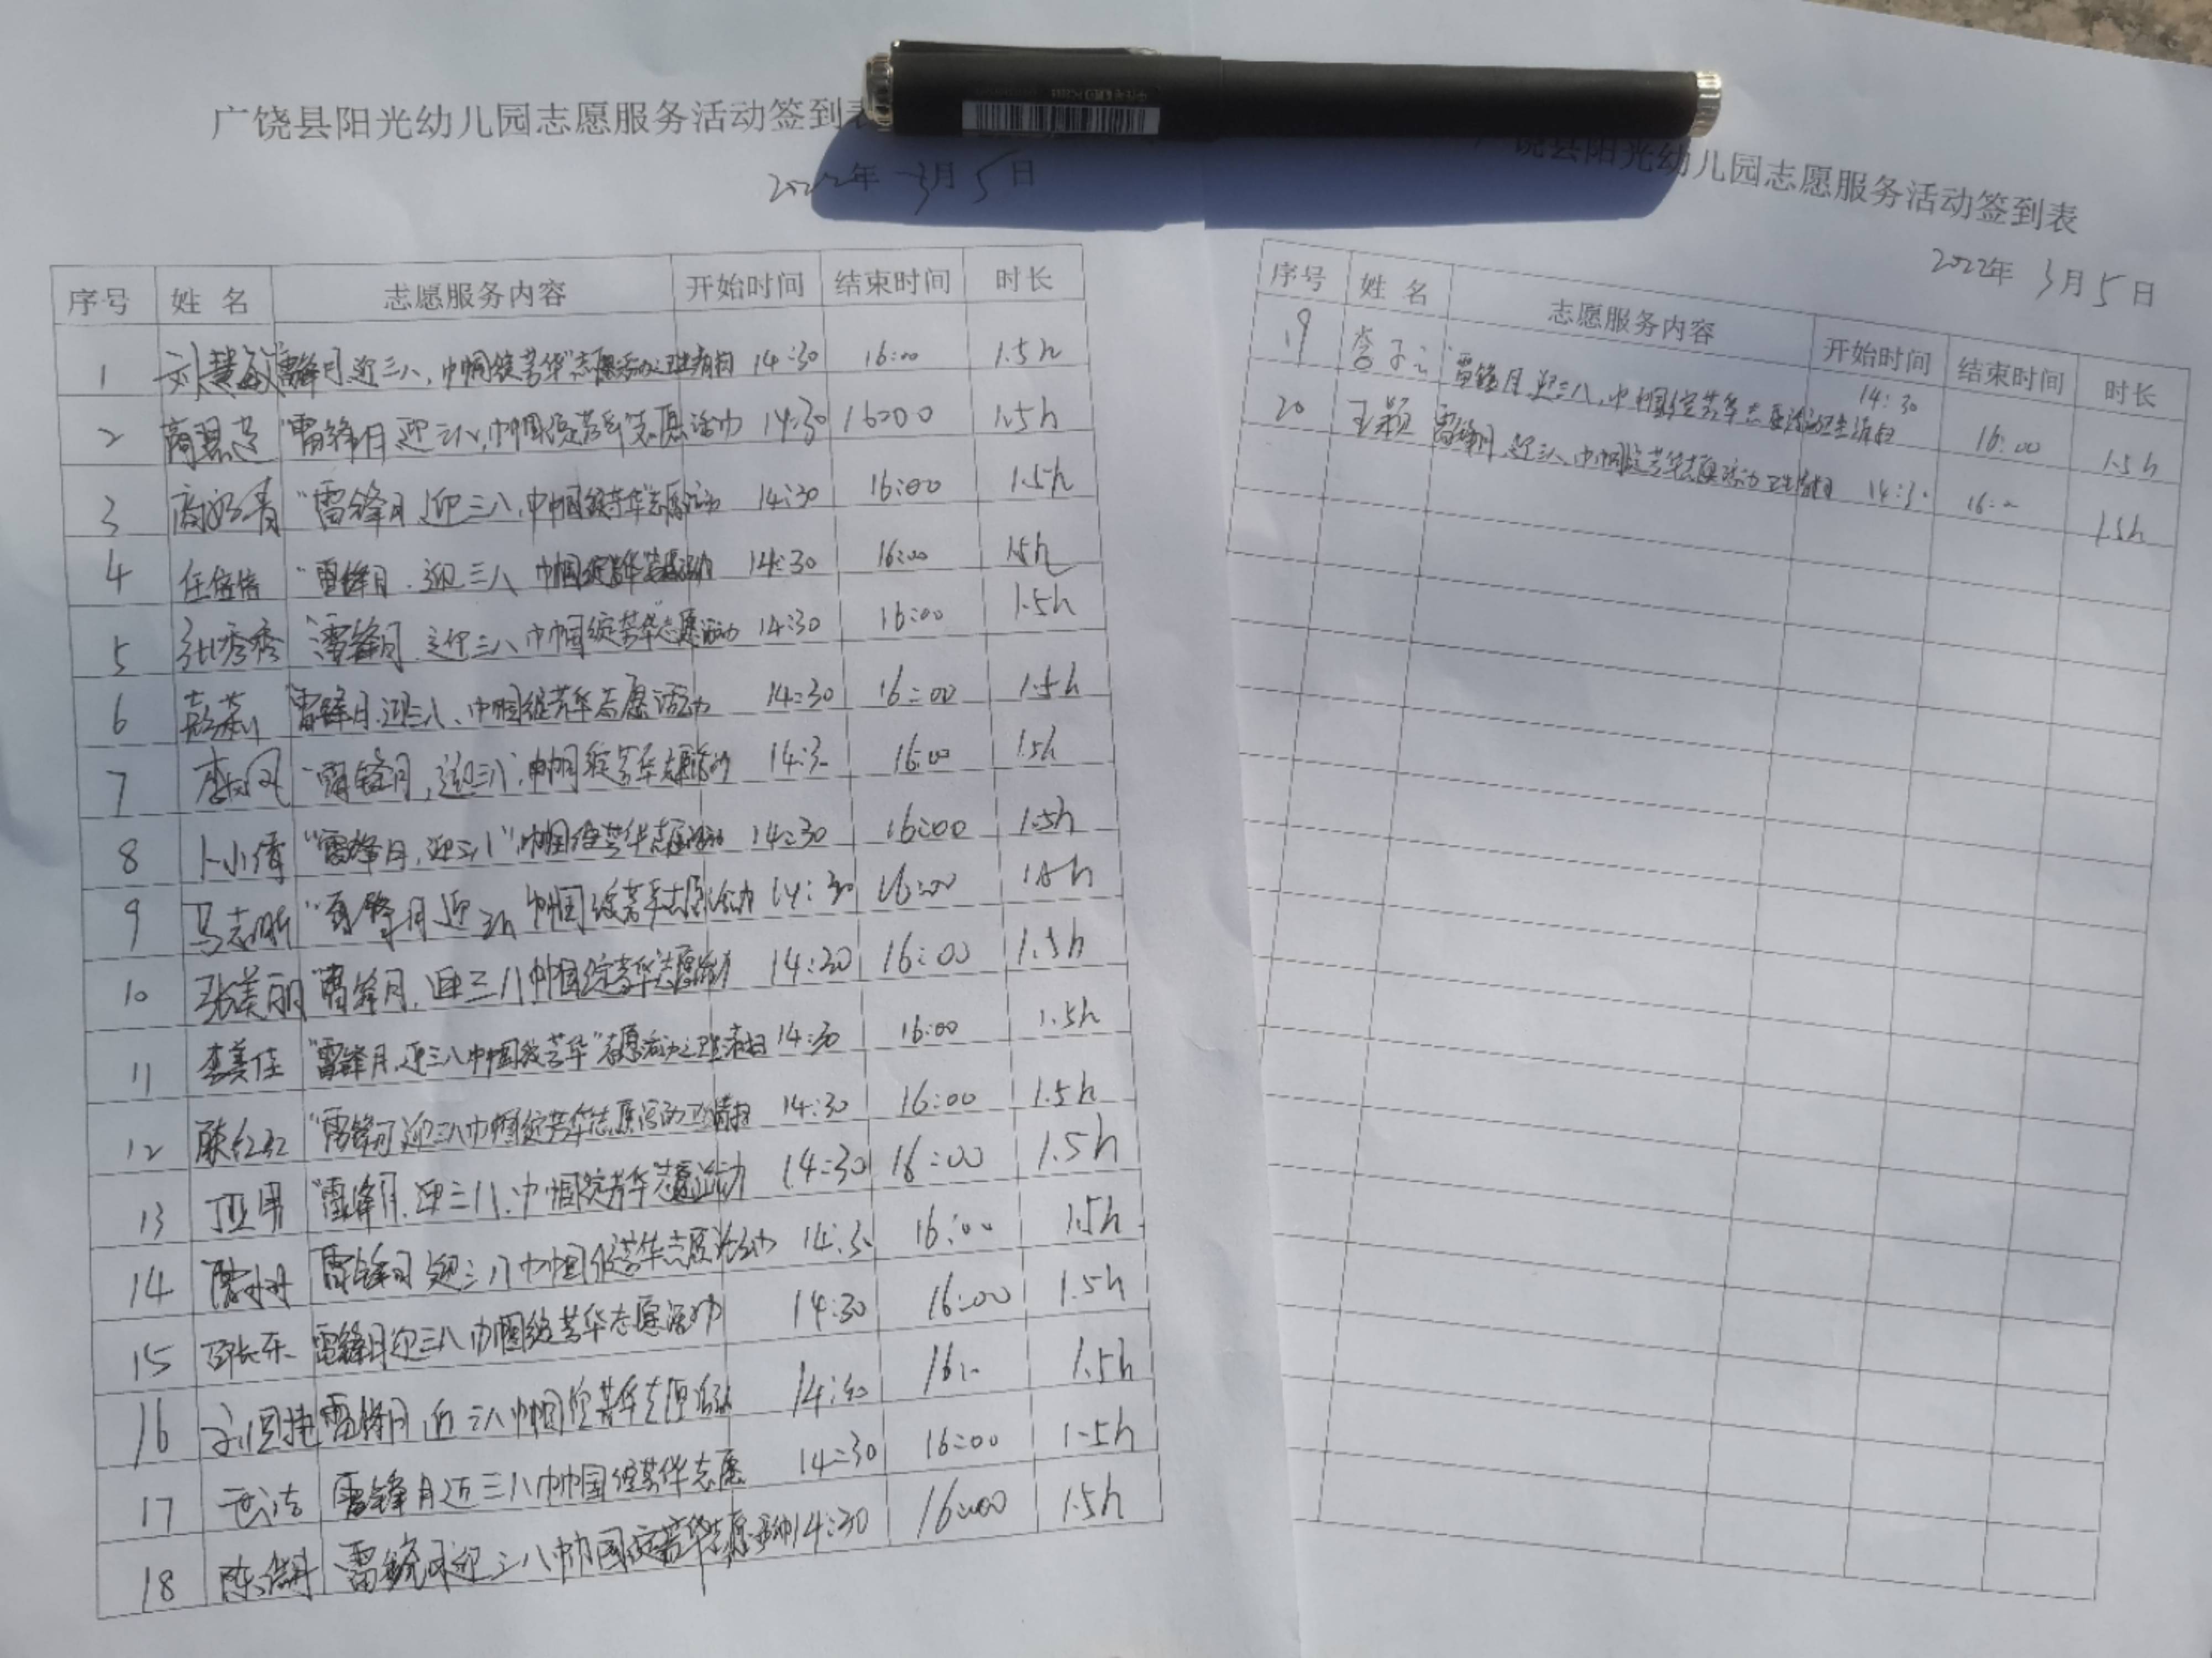 广饶县阳光幼儿园志愿服务活动签到表
2022年 3月 5日
序号 姓 名 志愿服务内容 开始时间 结束时间 时长
1 刘慧敏 "雷锋月,迎三八,巾帼绽芳华"志愿活动 14:30 16:00 1.5h
2 "雷锋月 迎三八,巾帼绽芳华"志愿活动 14:30 16:00 1.5h
3 "雷锋月,迎三八,巾帼绽芳华"志愿活动 14:30 16:00 1.5h
4 任倍倍 "雷锋月.迎三八 巾帼绽芳华"志愿活动 14:30 16:00 1.5h
5 张秀秀 "雷锋月.迎三八巾帼绽芳华"志愿活动 14:30 16:00 1.5h
6 "雷锋月.迎三八、巾帼绽芳华志愿活动 14:30 16:00 1.5h
7 "雷锋月,迎三八,巾帼绽芳华志愿活动 14:30 16:00 1.5h
8 卜小倩 "雷锋月,迎三八"巾帼绽芳华志愿活动 14:30 16:00 1.5h
9 "雷锋月 迎三八 巾帼绽芳华志愿活动 14:30 16:00 1.5h
10 张美丽 "雷锋月,迎三八巾帼绽芳华志愿活动 14:30 16:00 1.5h
11 李美佳 "雷锋月,迎三八巾帼绽芳华"志愿活动 14:30 16:00 1.5h
12 "雷锋月迎三八巾帼绽芳华志愿活动 14:30 16:00 1.5h
13 丁亚男 "雷锋月.迎三八、巾帼绽芳华"志愿活动 14:30 16:00 1.5h
14 雷锋月 迎三八巾帼绽芳华志愿活动 14:30 16:00 1.5h
15 邵长乐 雷锋月迎三八巾帼绽芳华志愿活动 14:30 16:00 1.5h
16 雷锋月 迎三八巾帼绽芳华志愿活动 14:30 16:00 1.5h
17 雷锋月迎三八巾帼绽芳华志愿 14:30 16:00 1.5h
18 雷锋月迎三八巾帼绽芳华志愿活动 14:30 16:00 1.5h
广饶县阳光幼儿园志愿服务活动签到表
2022年 3月 5日
序号 姓 名 志愿服务内容 开始时间 结束时间 时长
19 "雷锋月.迎三八,巾帼绽芳华志愿活动卫生清扫 14:30 16:00 1.5h
20 王颖 雷锋月,迎三八、巾帼绽芳华志愿活动卫生清扫 14:30 16:00 1.5h